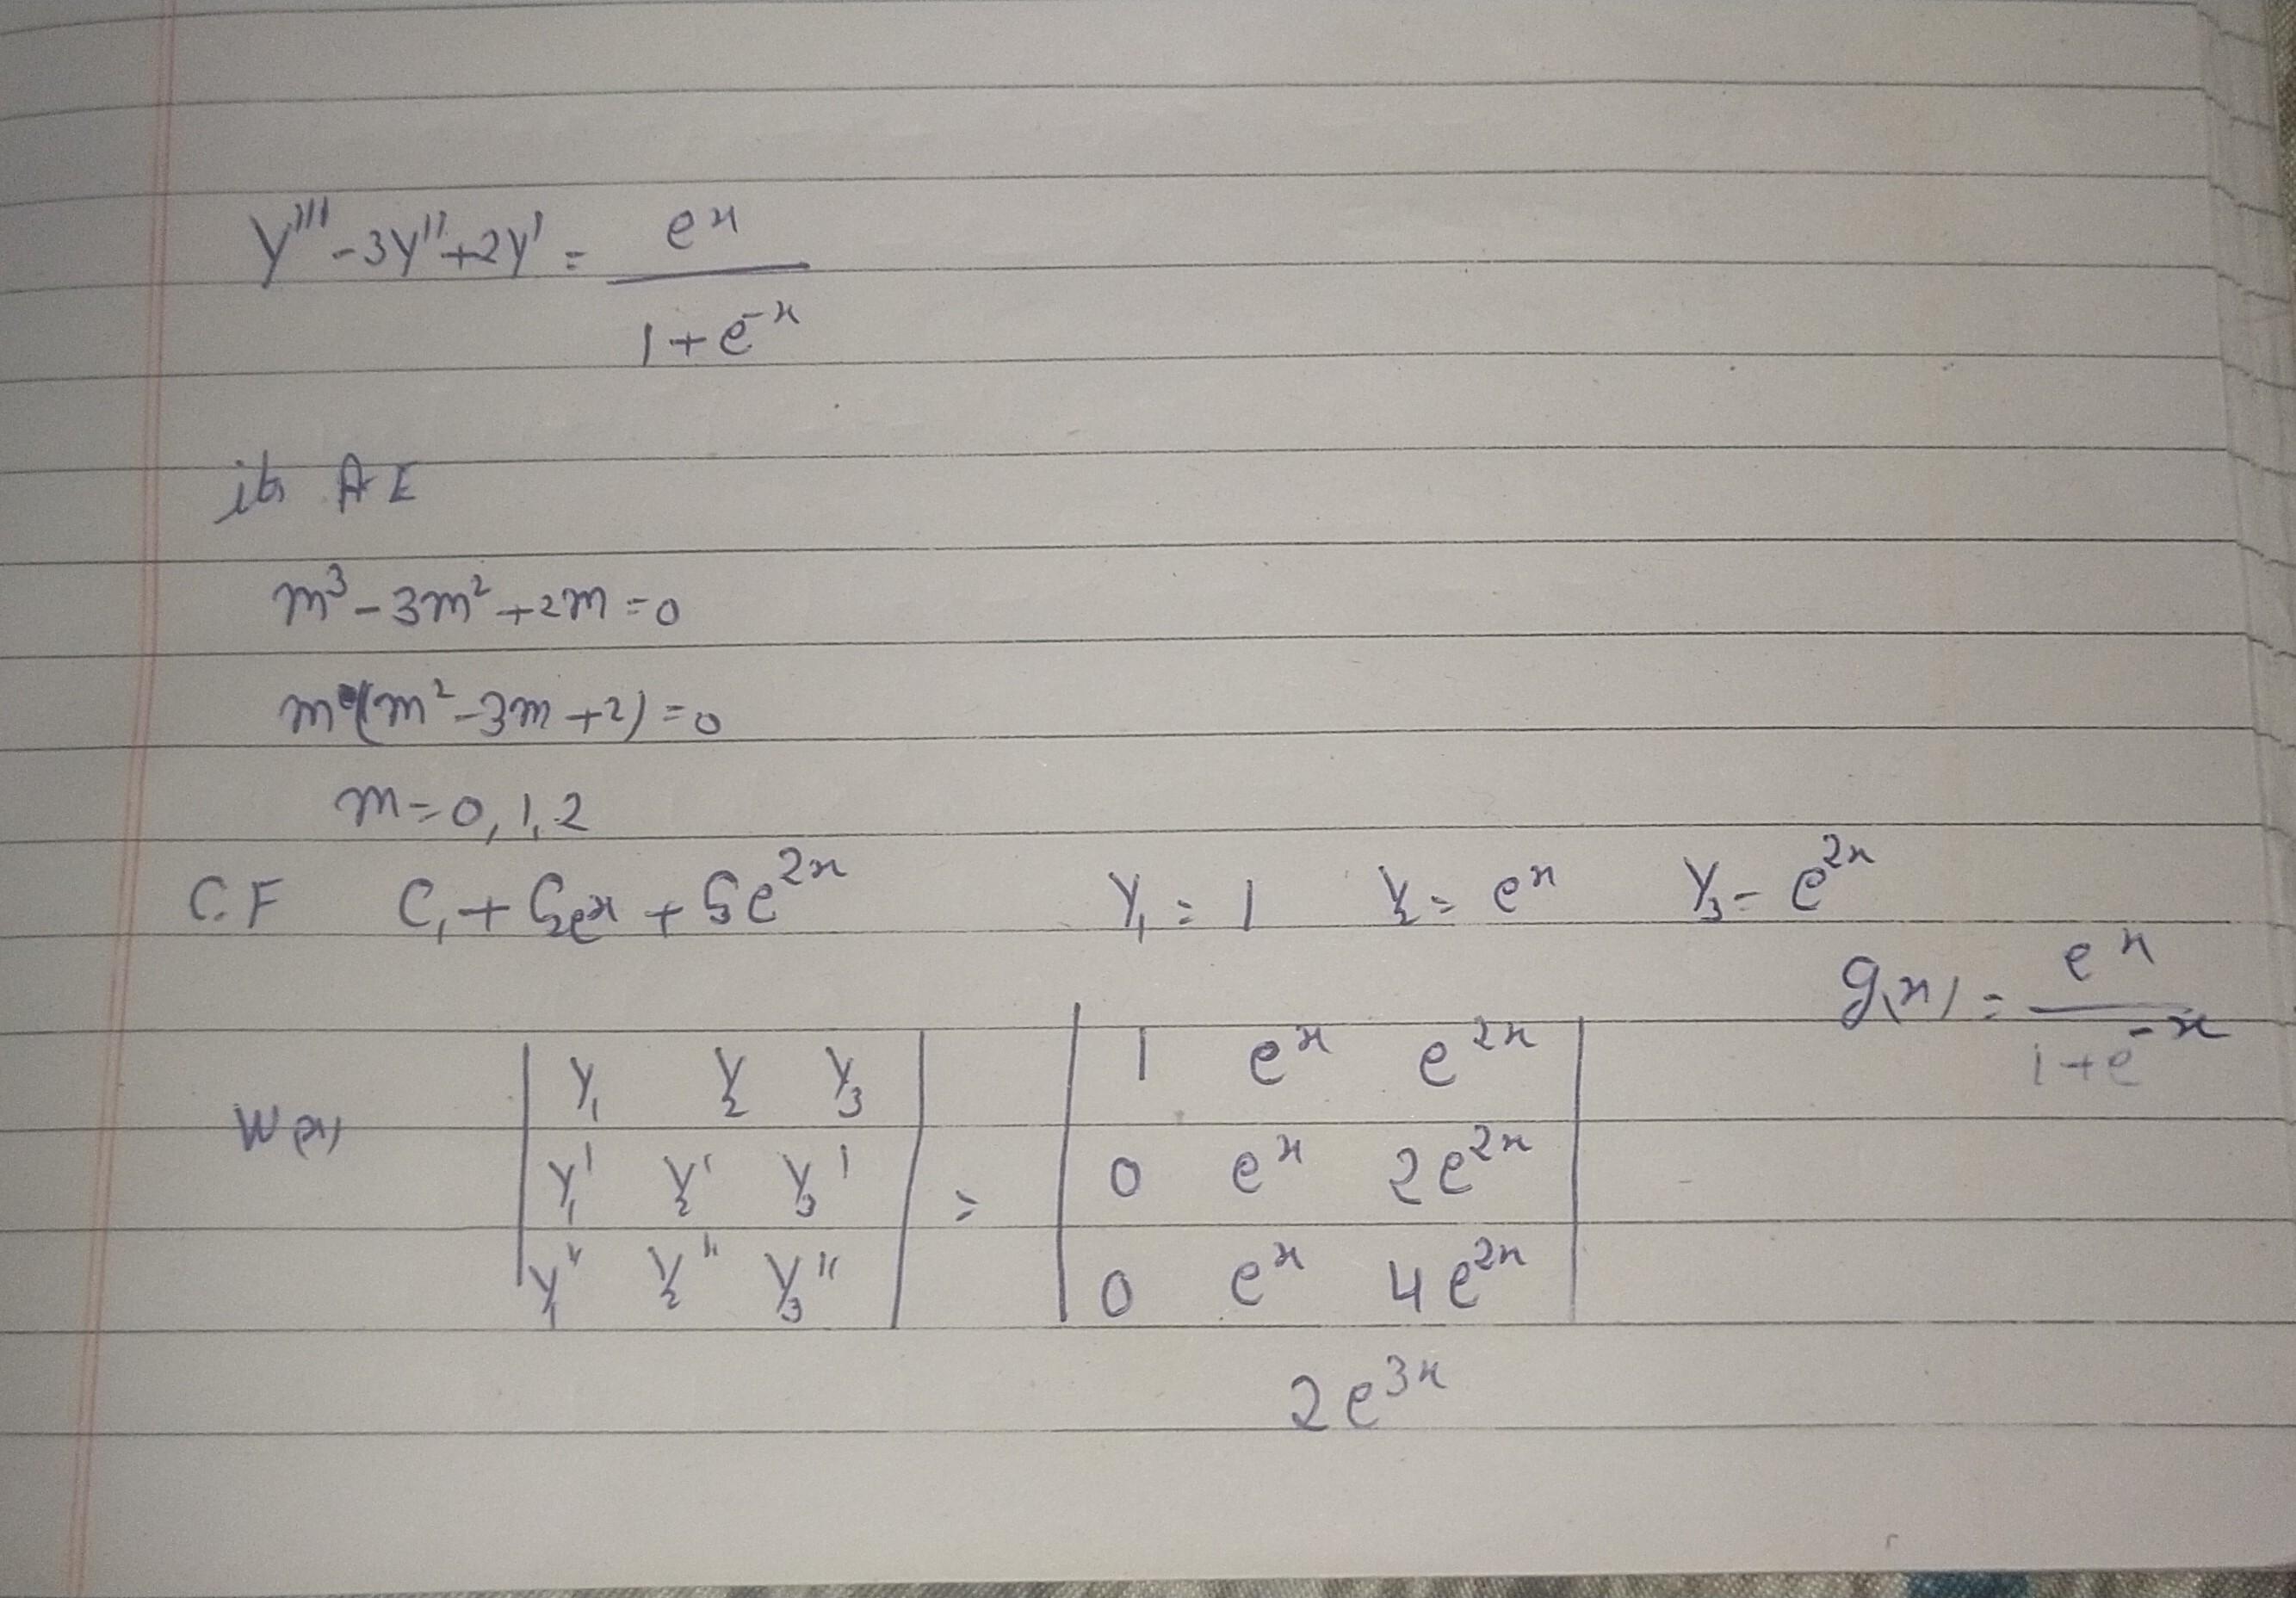 y''' - 3y'' + 2y' = e^x / (1 + e^-x)
its AE
m^3 - 3m^2 + 2m = 0
m(m^2 - 3m + 2) = 0
m = 0, 1, 2
C.F C₁ + C₂e^x + C₃e^2x y₁ = 1 y₂ = e^x y₃ = e^2x
g(x) = e^x / (1 + e^-x)
W(x) | y₁ y₂ y₃ | = | 1 e^x e^2x |
| y₁' y₂' y₃' | | 0 e^x 2e^2x |
| y₁'' y₂'' y₃'' | | 0 e^x 4e^2x |
2e^3x